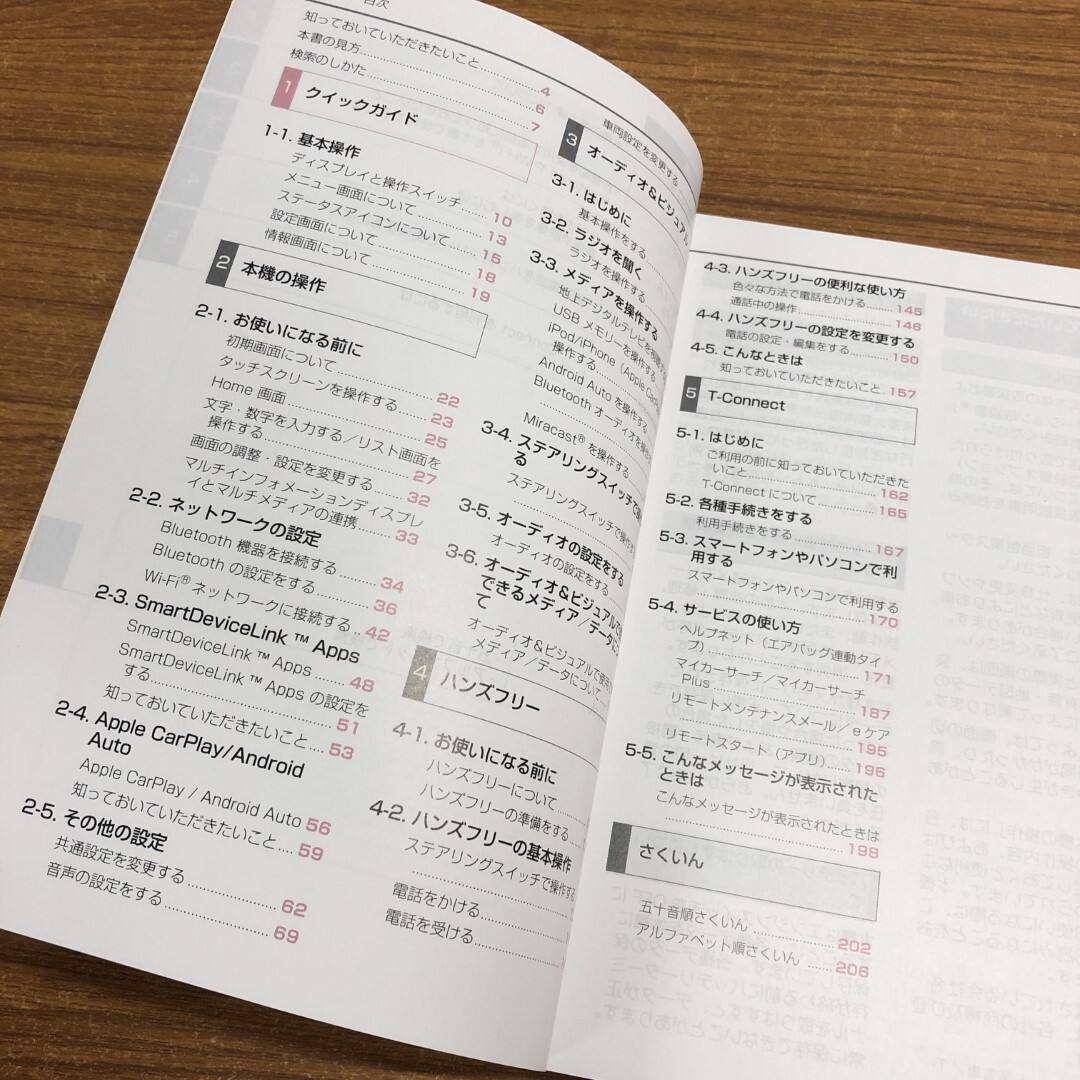 目次
知っておいていただきたいこと..........4
本書の見方..........6
検索のしかた..........7
1 クイックガイド
1-1. 基本操作
ディスプレイと操作スイッチ..........10
メニュー画面について..........13
ステータスアイコンについて..........15
設定画面について..........18
情報画面について..........19
2 本機の操作
2-1. お使いになる前に
初期画面について..........22
タッチスクリーンを操作する..........23
Home 画面..........25
文字・数字を入力する／リスト画面を
操作する..........27
画面の調整・設定を変更する..........32
マルチインフォメーションディスプレ
イとマルチメディアの連携..........33
2-2. ネットワークの設定
Bluetooth 機器を接続する..........34
Bluetooth の設定をする..........36
Wi-Fi® ネットワークに接続する..........42
2-3. SmartDeviceLink ™ Apps
SmartDeviceLink ™ Apps..........48
SmartDeviceLink ™ Apps の設定を
する..........51
知っておいていただきたいこと....53
2-4. Apple CarPlay/Android
Auto
Apple CarPlay / Android Auto 56
知っておいていただきたいこと....59
2-5. その他の設定
共通設定を変更する..........62
音声の設定をする..........69
車両設定を変更する
3 オーディオ&ビジュアル
3-1. はじめに
基本操作をする
3-2. ラジオを聞く
ラジオを操作する
3-3. メディアを操作する
地上デジタルテレビを視聴す
USB メモリーを操作する
iPod/iPhone (Apple CarP
操作する
Android Auto を操作する
Bluetooth オーディオを操作
Miracast® を操作する
3-4. ステアリングスイッチで操
る
ステアリングスイッチで操作
3-5. オーディオの設定をする
オーディオの設定をする
3-6. オーディオ&ビジュアルで
できるメディア／データに
て
オーディオ&ビジュアルで使用
メディア／データについて
4 ハンズフリー
4-1. お使いになる前に
ハンズフリーについて
ハンズフリーの準備をする
4-2. ハンズフリーの基本操作
ステアリングスイッチで操作する
電話をかける
電話を受ける
4-3. ハンズフリーの便利な使い方
色々な方法で電話をかける..........145
通話中の操作..........146
4-4. ハンズフリーの設定を変更する
電話の設定・編集をする..........150
4-5. こんなときは
知っておいていただきたいこと.157
5 T-Connect
5-1. はじめに
ご利用の前に知っておいていただきた
いこと..........162
T-Connect について..........165
5-2. 各種手続きをする
利用手続きをする..........167
5-3. スマートフォンやパソコンで利
用する
スマートフォンやパソコンで利用する
..........170
5-4. サービスの使い方
ヘルプネット（エアバッグ連動タイ
プ）..........171
マイカーサーチ／マイカーサーチ
Plus..........187
リモートメンテナンスメール／e ケア
..........195
リモートスタート（アプリ）......196
5-5. こんなメッセージが表示された
ときは
こんなメッセージが表示されたときは
..........198
さくいん
五十音順さくいん..........202
アルファベット順さくいん......206